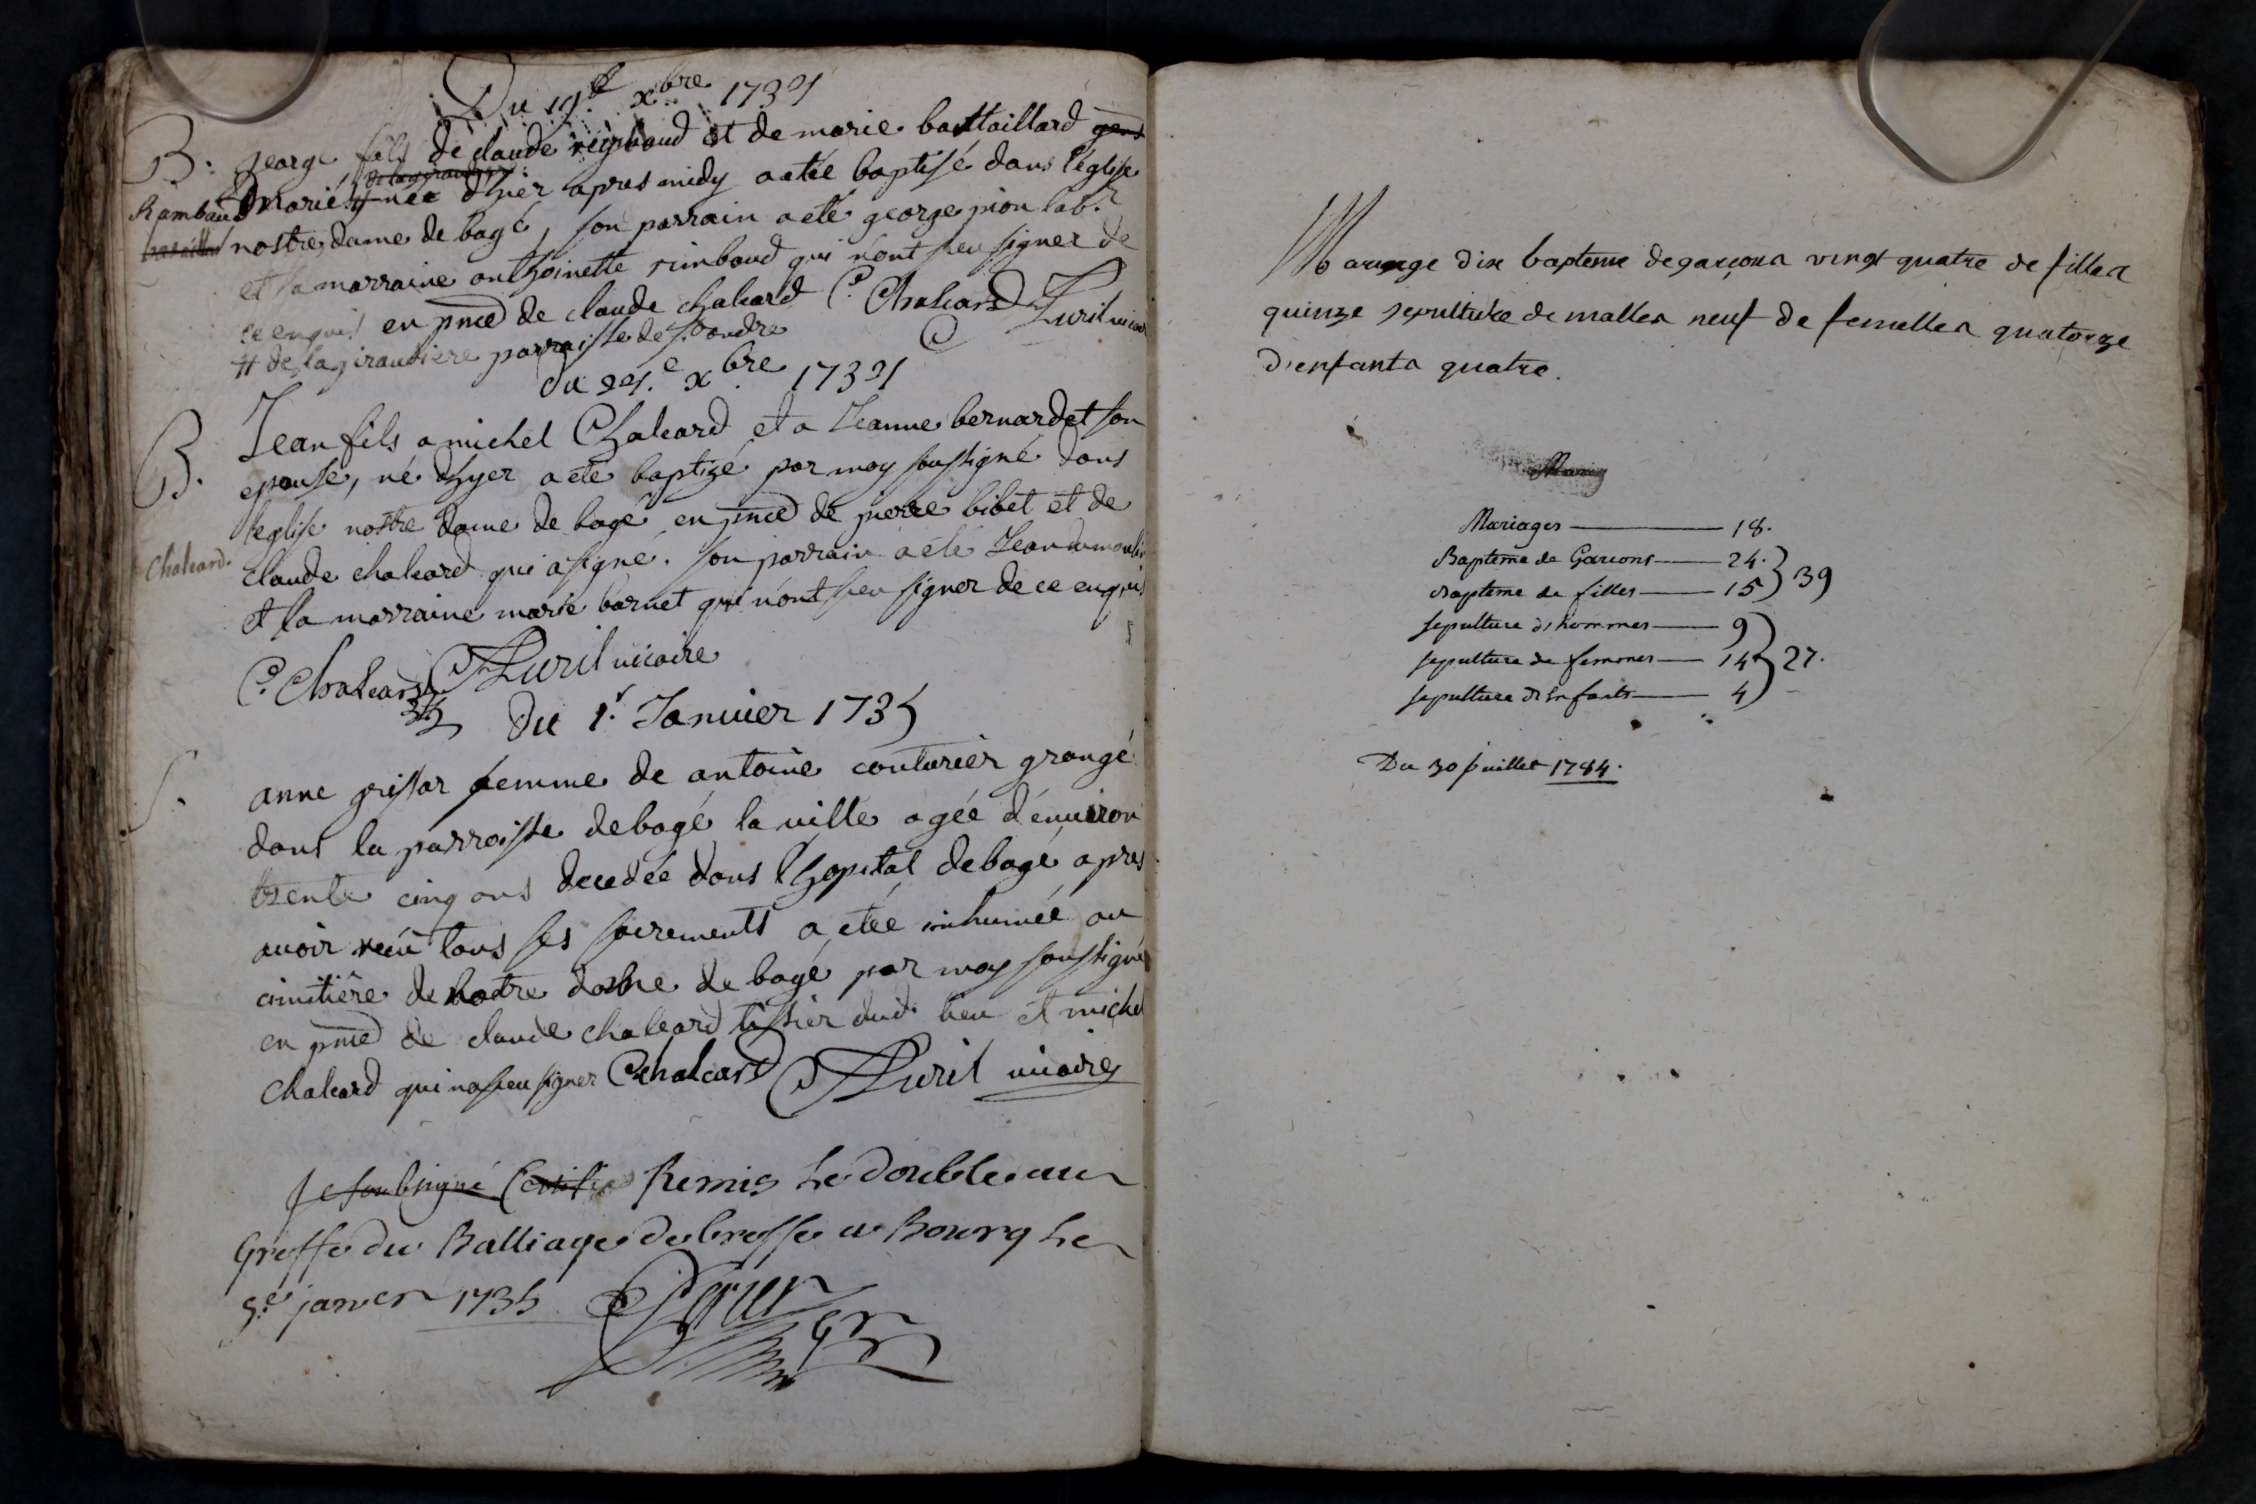 Du 19e xbre 1734
B. george fils de claude rimbaud et de marie battaillard
Rambaud mariés # née d'hier apres midy a etée baptisé dans l'église
nostre dame de bagé, son parrain a eté george pion labr
et la marraine anthoinette rimbaud qui n'ont sceu signer de
ce enquis en pnce de claude chaleard C. Chaleard Luril vicaire
# de la giraudiere parroisse de st andré
du xbre 1734
B. Jean fils a michel Chaleard et a Jeanne bernardet son
epouse, né d'hyer a eté baptizé par moy soussigné dans
l'eglise nostre dame de bagé en pnce de pierre bibet et de
Chaleard. claude chaleard qui a signé. son parrain a eté Jean dumoulin
et la marraine marie barnet qui n'ont sceu signer de ce enquis
C. Chaleard Luril vicaire
Du 1r Januier 1735
S. anne grissar femme de antoine couturier grangé
dans la parroisse de bagé la ville agée d'enuiron
trente cinq ans decedée dans l'hopital de bagé apres
auoir receu tous ses sacrements a etée inhumée au
cimitière de notre dame de bagé par moy soussigné
en pnce de claude chaleard tissier dud. lieu et michel
chaleard qui na sceu signer C. chaleard Luril uicaire
Je soubsigné Certifie Remis Le double au
Greffe du Balliage de bresse a Bourg Le
5e janer 1735
Mariage dix bapteme de garçons vingt quatre de filles
quinze sepulture de malles neuf de femelles quatorze
d'enfants quatre.
Mariages 18.
Baptême de Garcons 24.
Baptême de filles 15 } 39
sepulture d'hommes 9
sepulture de femmes 14 } 27.
sepulture d'Enfants 4
Du 30 Juillet 1784.